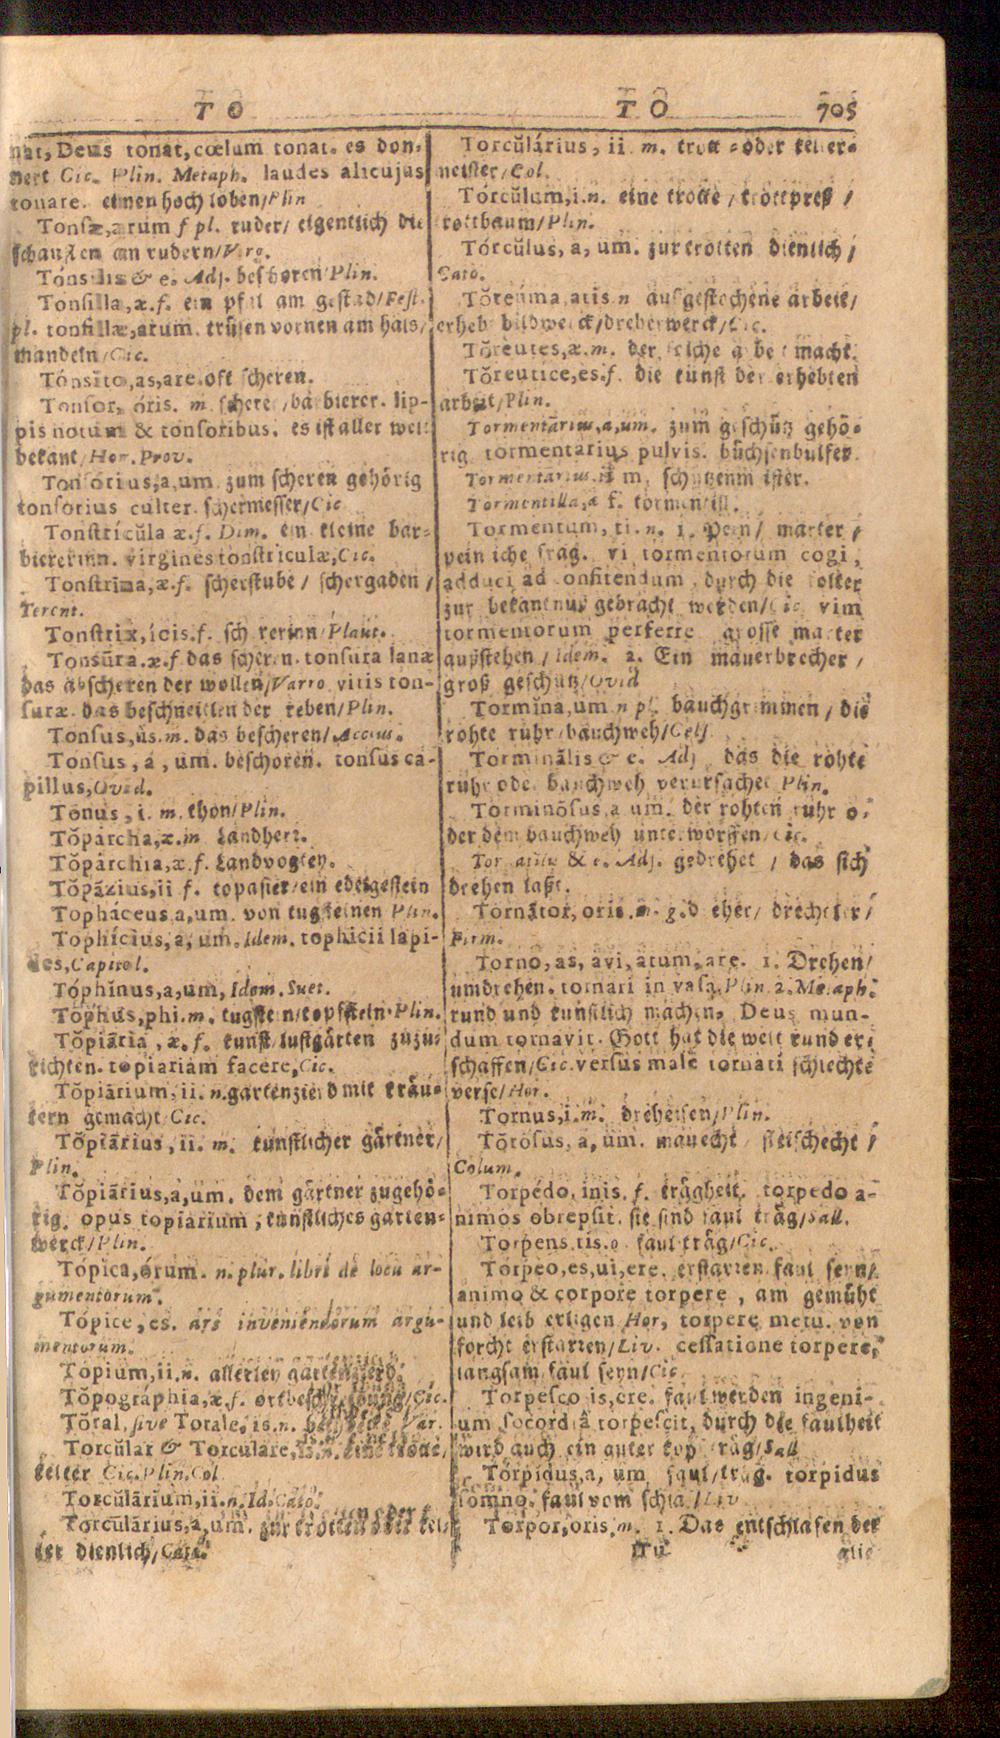 T O
T O 705
nat, Deus tonat, cœlum tonat. es don-
nert Cic. Plin. Metaph. laudes alicujus
tonare. einen hoch loben/Plin
Tonsæ, arum f pl. ruder/ eigentlich die
schauflen an rudern/Virg.
Tónsilis & e. Adj. beschoren/Plin.
Tonsilla, æ. f. ein pfal am gestad/Fest.
pl. tonsillæ, arum. trüsen vornen am hals/
mandeln/Cic.
Tónsĭto, as, are. oft scheren.
Tonsor, óris. m. scherer/barbierer. lip-
pis notum & tonsoribus. es ist aller welt
bekant/Hor. Prov.
Tonsórius, a, um. zum scheren gehörig
tonsorius culter. schermesser/Cic
Tonstrícŭla æ. f. Dim. ein kleine bar-
biererinn. virgines tonstriculæ, Cic.
Tonstrina, æ. f. scherstube / schergaden /
Terent.
Tonstrix, ícis. f. schererinn/Plaut.
Tonsūra. æ. f. das scheren. tonsura lanæ
das abscheren der wollen/Varro vitis ton-
suræ das beschneiden der reben/Plin.
Tonsus, ûs. m. das bescheren/Accius.
Tonsus, a, um. beschoren. tonsus ca-
pillus, Ovid.
Tonus, i. m. thon/Plin.
Tŏpárcha, æ. m Landherr.
Tŏpárchia, æ. f. Landvogtey.
Tŏpāzius, ii f. topasier/ein edelgestein
Topháceus, a, um. von tugsteinen Plin.
Tophícius, a, um. Idem. tophicii lapi-
des, Capitol.
Tóphinus, a, um, Idem. Suet.
Tóphus, phi. m. tugstein/topfstein. Plin.
Tŏpiāria, æ. f. kunst lustgärten zuzu-
richten. topiariam facere, Cic.
Tŏpiārium, ii. n. gartenzierd mit kräu-
tern gemacht/Cic.
Tŏpiārius, ii. m. kunstlicher gärtner/
Plin.
Tŏpiārius, a, um. dem gärtner zugehö-
rig. opus topiarium, kunstliches garten-
werck/Plin.
Tópica, órum. n. plur. libri de locis ar-
gumentorum.
Tópice, es. ars inveniendorum argu-
mentorum.
Topium, ii. n. allerley gartenzierd.
Tŏpográphia, æ. f. ortbeschreibung/Cic.
Tŏral, sive Torale, is. n. Var.
Torcŭlar & Torculare, is. n. eine trotte,
kelter Cic. Plin. Col
Torcŭlārium, ii. n. Id. Cato.
Torcŭlārius, a, um. zur trotten oder kel-
ter dienlich/Cato.
Torcŭlárius, ii. m. trott- oder kelter-
meister/Col.
Tórcŭlum, i. n. eine trotte / trottpreß /
trottbaum/Plin.
Tórcŭlus, a, um. zur trotten dienlich /
Cato.
Tŏreúma, atis. n ausgestochene arbeit/
erhebt bildwerck/dreherwerck/Cic.
Tŏreutes, æ. m. der solche arbeit macht.
Tŏreutice, es. f. die kunst der erhebten
arbeit/Plin.
Tormentārius, a, um. zum geschütz gehö-
rig tormentarius pulvis. büchsenpulfer
Tormentarius. ii m. schützenmeister.
Tormentilla, æ f. tormentill.
Tormentum, ti. n. 1. Pein / marter /
peinliche frag. vi tormentorum cogi,
adduci ad confitendum, durch die folter
zur bekantnus gebracht werden/Cic. vim
tormentorum perferre grosse marter
außstehen / Idem. 2. Ein mauerbrecher /
groß geschütz/Ovid
Tormina, um n pl. bauchgrimmen / die
rohte ruhr/bauchweh/Cels.
Torminālis & e. Adj das die rohte
ruhr oder bauchweh verursachet Plin.
Torminōsus, a um. der rohten ruhr o-
der dem bauchweh unterworffen/Cic.
Tornatilis & e. Adj. gedrehet / das sich
drehen laßt.
Tornātor, oris. m. dreher/ drechsler/
Firm.
Torno, as, avi, atum, are. 1. Drehen/
umdrehen. tornari in vasa, Plin. 2. Metaph.
rund und kunstlich machen. Deus mun-
dum tornavit. Gott hat die welt rund er-
schaffen/Cic. versus male tornati schlechte
verse/Hor.
Tornus, i. m. dreheisen/Plin.
Tŏrósus, a, um. mauecht / fleischecht /
Colum.
Torpédo, inis. f. trägheit. torpedo a-
nimos obrepsit. sie sind faul träg/Sall.
Torpens. tis. o faul träg/Cic.
Torpeo, es, ui, ere. erstarren faul seyn/
animo & corpore torpere, am gemüht
und leib erligen Hor, torpere metu. von
forcht erstarren/Liv. cessatione torpere,
langsam faul seyn/Cic
Torpesco is, ere. faul werden ingeni-
um socordiâ torpescit, durch die faulheit
wird auch ein guter kopf träg/Sall
Tórpidus, a, um faul/träg. torpidus
somno. faul vom schlaf/Liv
Torpor, oris, m. 1. Das entschlafen der
glie